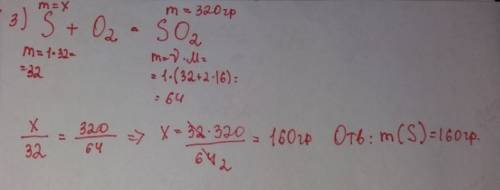 m=x m=320гр
3) S + O₂ = SO₂
m=1·32= m=ν·M=
=32 =1·(32+2·16)=
=64
x/32 = 320/64 => x = 32·320/64 2 = 160гр Отв: m(S)=160гр.